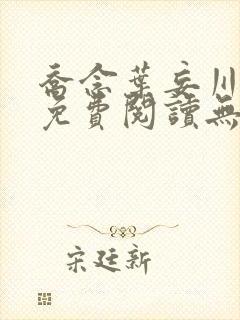 喬念葉妄川
免費閱讀無
宋廷新